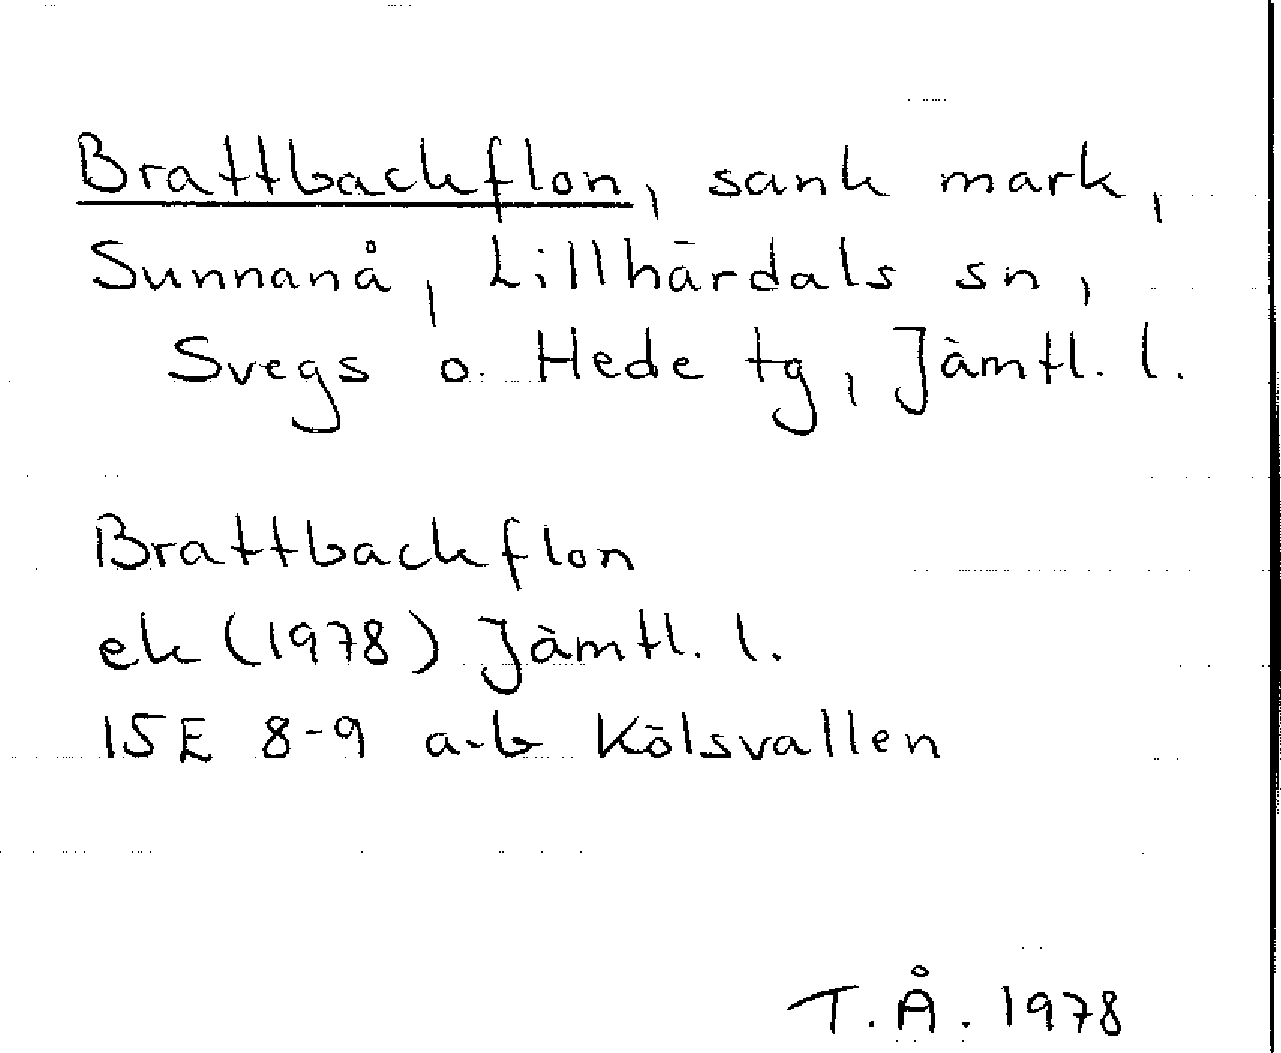 Brattbackflon, sank mark,
Sunnanå, Lillhärdals sn,
Svegs o. Hede tg, Jämtl. l.
Brattbackflon
ek (1978) Jämtl. l.
15E 8-9 a-b Kölsvallen
T.Å. 1978